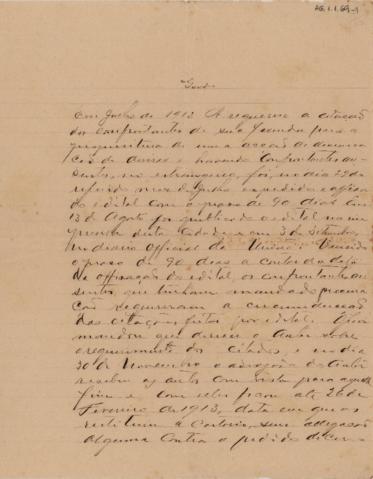 AG.1.1.69-1
Em Julho de 1912 A requereu a citação
dos confrontantes de sua fazenda para a
de uma acção de
e havendo confrontantes au-
sentes, no estrangeiro, foi, no dia 22 do
referido mez de Julho expedido e affixa-
do edital com o praso de 90 dias. Em
13 de Agosto foi publicado o edital na im-
prensa desta cidade e em 3 de Setembro,
no diario Official da União. Vencido
o praso de 90 dias a contar da data
da affixação do edital, os confrontantes au-
sentes, que tinham mandado procura-
ção requereram a circumducção
das citações feitas por edital. O Juiz
mandou que dissesse o autor sobre
o requerimento dos citados e no dia
30 de Novembro o advogado do autor
recebeu os autos com vista para aquelle
fim e com elles ficou até 26 de
Fevereiro de 1913, data em que os
restituiu a Cartorio, sem allegação
alguma contra o pedido de circum-